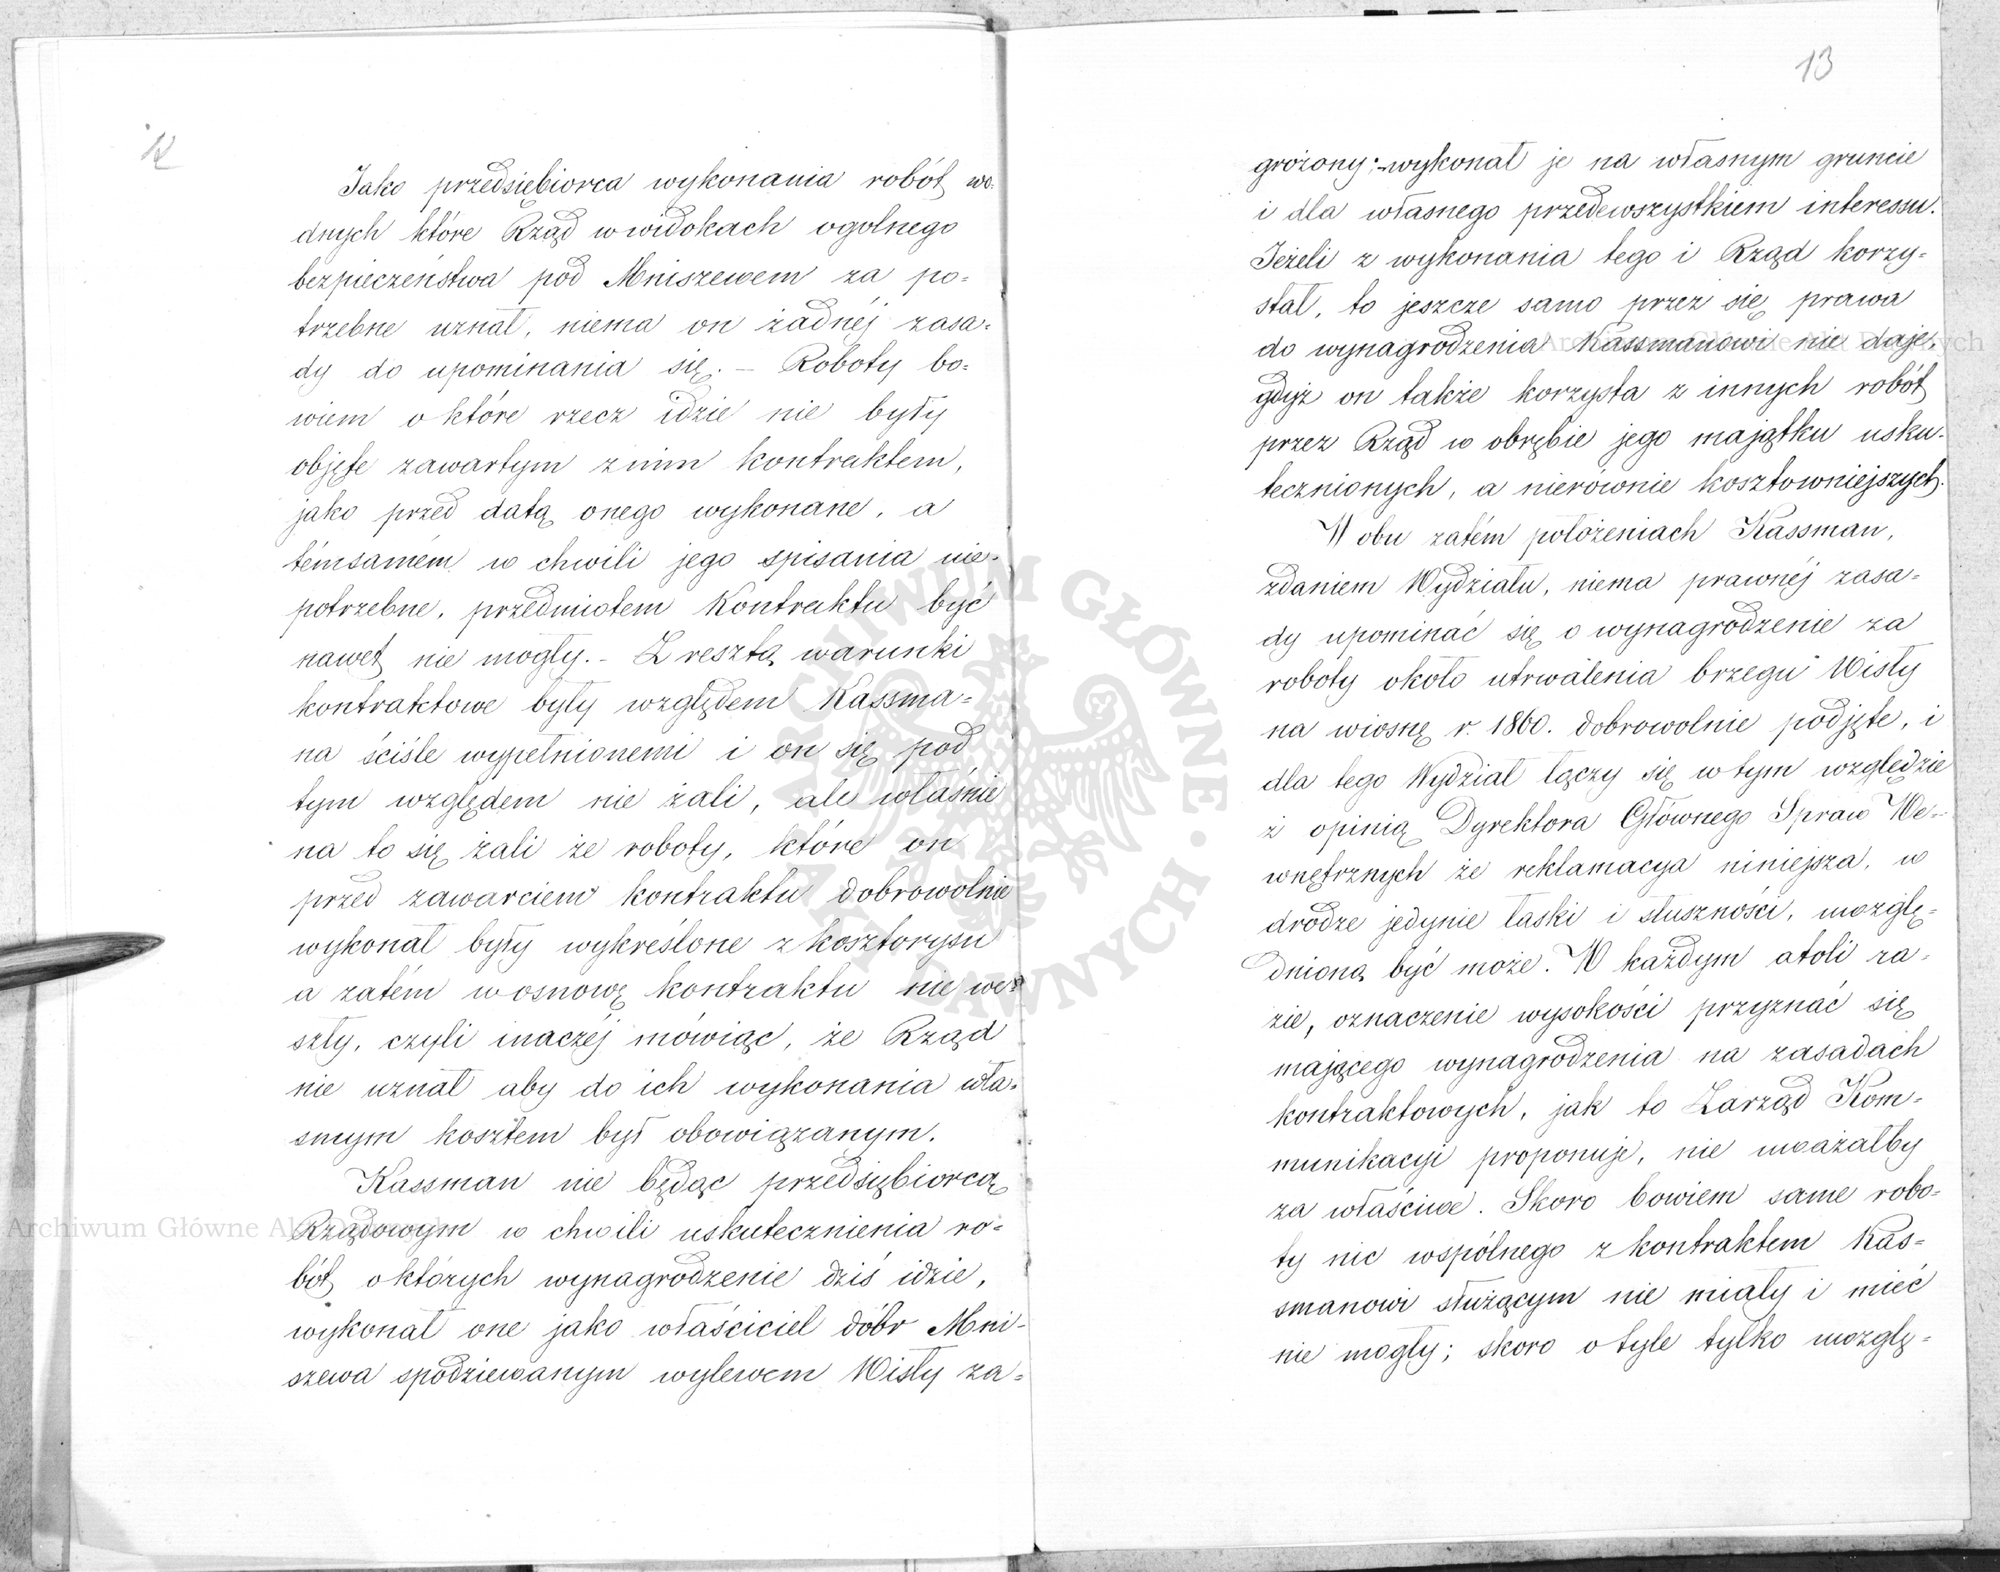 12
Jako przedsiębiorca wykonania robót wo-
dnych które Rząd w widokach ogolnego
bezpieczeństwa pod Mniszewem za po=
trzebne uznał, niema on żadnéj zasa=
dy do upominania się. — Roboty bo=
wiem o które rzecz idzie nie były
objęte zawartym z nim kontraktem,
jako przed datą onego wykonane, a
témsamém w chwili jego spisania nie-
potrzebne, przedmiotem Kontraktu być
nawet nie mogły. - Z resztą warunki
kontraktowe były względem Kassma=
na ściśle wypełnionemi i on się pod
tym względem nie żali, ale właśnie
na to się żali że roboty, które on
przed zawarciem kontraktu dobrowolnie
wykonał były wykreślone z kosztorysu
a zatém w osnowę kontraktu nie we=
szły, czyli inaczéj mówiąc, że Rząd
nie uznał aby do ich wykonania wła-
snym kosztem był obowiązanym.
Kassman nie będąc przedsiębiorcą
Rządowym w chwili uskutecznienia ro=
bót o których wynagrodzenie dziś idzie,
wykonał one jako właściciel dóbr Mni-
szewa spodziewanym wylewem Wisły za=
13
grożony; wykonał je na własnym gruncie
i dla własnego przedewszystkiem interessu.
Jeżeli z wykonania tego i Rząd korzy=
stał, to jeszcze samo przez się prawa
do wynagrodzenia Kassmanowi nie daje,
gdyż on także korzysta z innych robót
przez Rząd w obrębie jego majątku usku-
tecznionych, a nierównie kosztowniejszych.
W obu zatém położeniach Kassman,
zdaniem Wydziału, niema prawnéj zasa=
dy upominać się o wynagrodzenie za
roboty około utrwalenia brzegu Wisły
na wiosnę r. 1860. dobrowolnie podjęte, i
dla tego Wydział łączy się w tym względzie
z opinią Dyrektora Głównego Spraw We-
wnętrznych że reklamacya niniejsza, w
drodze jedynie łaski i słuszności, uwzglę=
dnioną być może. W każdym atoli ra=
zie, oznaczenie wysokości przyznać się
mającego wynagrodzenia na zasadach
kontraktowych, jak to Zarząd Kom=
munikacyi proponuje, nie uważałby
za właściwe. Skoro bowiem same robo=
ty nic wspólnego z kontraktem Kas=
smanowi służącym nie miały i mieć
nie mogły; skoro o tyle tylko uwzglę=
ARCHIWUM GŁÓWNE AKT DAWNYCH
Archiwum Główne Akt Dawnych
Archiwum Główne Akt Dawnych